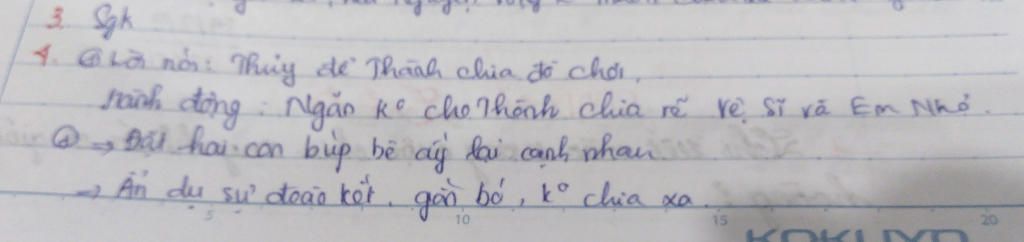 3. Sgk
4. ⓐ Lời nói: Thủy để Thành chia đồ chơi,
hành động: Ngăn kº cho Thành chia rẽ Vệ Sĩ và Em Nhỏ.
ⓑ → Đặt hai con búp bê ấy lại cạnh nhau
→ Ẩn dụ sự đoàn kết, gắn bó, kº chia xa.
5 10 15 20
KOKUYO